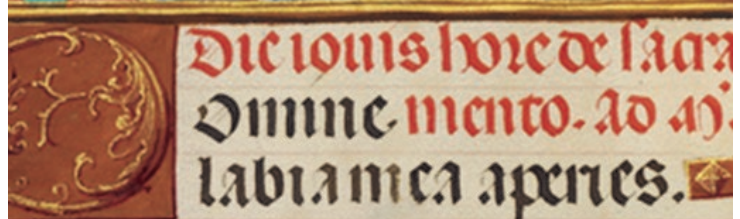 Die iouis hore de sacra
Domine. mento. Ad m̃.
labia mea aperies.